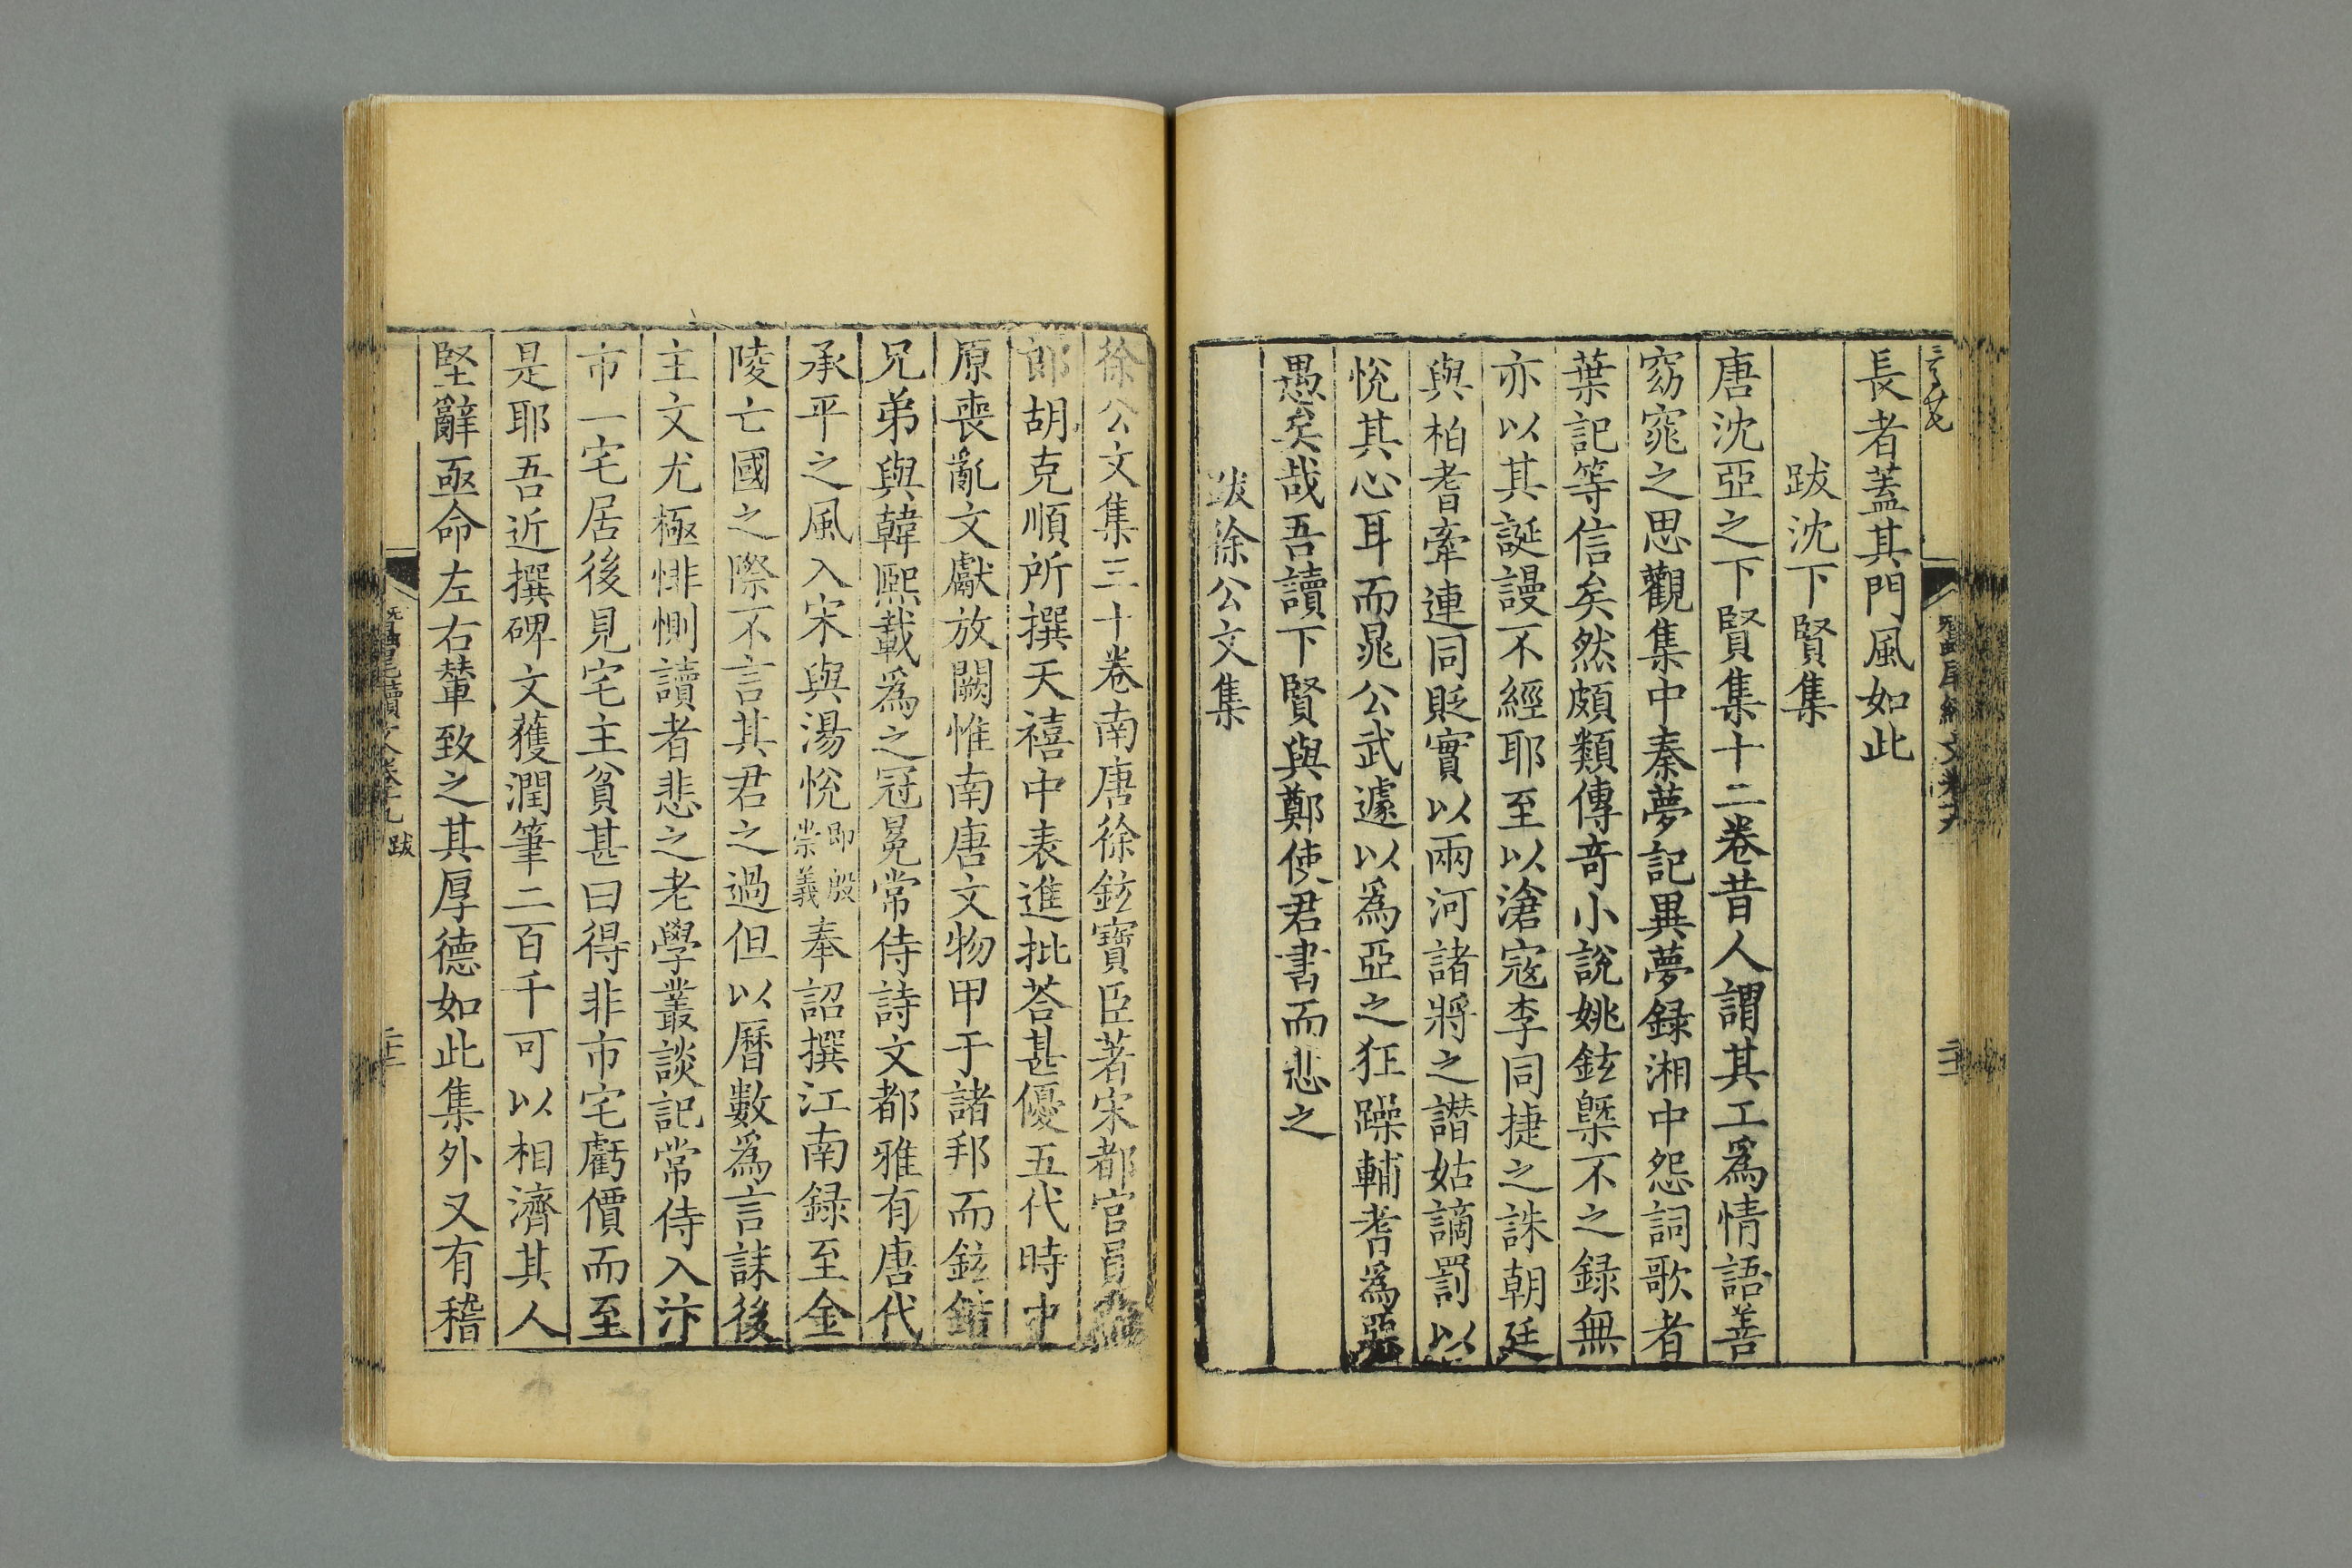 長者蓋其門風如此
跋沈下賢集
唐沈亞之下賢集十二卷昔人謂其工爲情語善
窈窕之思觀集中秦夢記異夢録湘中怨詞歌者
葉記等信矣然頗類傳奇小說姚鉉槩不之録無
亦以其誕謾不經耶至以滄寇李同捷之誅朝廷
與柏耆牽連同貶實以兩河諸將之譖姑謫罰以
悅其心耳而晁公武遽以爲亞之狂躁輔耆爲惡
愚矣哉吾讀下賢與鄭使君書而悲之
跋徐公文集
徐公文集三十卷南唐徐鉉寶臣著宋都官員
郎胡克順所撰天禧中表進批荅甚優五代時中
原喪亂文獻放闕惟南唐文物甲于諸邦而鉉鍇
兄弟與韓熙載爲之冠冕常侍詩文都雅有唐代
承平之風入宋與湯悅即殷崇義奉詔撰江南録至金
陵亡國之際不言其君之過但以曆數爲言誄後
主文尤極悱惻讀者悲之老學叢談記常侍入汴
市一宅居後見宅主貧甚曰得非市宅虧價而至
是耶吾近撰碑文獲潤筆二百千可以相濟其人
堅辭亟命左右輦致之其厚德如此集外又有稽
跋